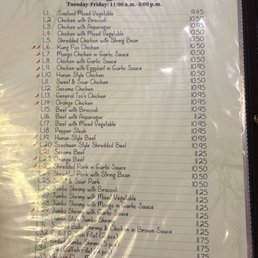 Tuesday-Friday: 11:00 a.m.-3:00 p.m.
L1. Sauteed Mixed Vegetable 9.45
L2. Chicken with Broccoli 10.50
L3. Chicken with Asparagus 10.95
L4. Chicken with Mixed Vegetable 10.50
L5. Shredded Chicken with String Bean 10.50
L6. Kung Pao Chicken 10.50
L7. Mango Chicken in Garlic Sauce 10.95
L8. Chicken with Garlic Sauce 10.50
L9. Chicken with Eggplant in Garlic Sauce 10.95
L10. Hunan Style Chicken 10.50
L11. Sweet & Sour Chicken 10.50
L12. Sesame Chicken 10.95
L13. General Tso's Chicken 10.95
L14. Orange Chicken 10.95
L15. Beef with Broccoli 10.95
L16. Beef with Asparagus 11.25
L17. Beef with Mixed Vegetable 10.95
L18. Pepper Steak 10.95
L19. Hunan Style Beef 10.95
L20. Szechuan Style Shredded Beef 10.95
L21. Sesame Beef 11.25
L23. Orange Beef 11.25
Shredded Pork in Garlic Sauce 10.50
Shredded Pork with String Bean 10.50
& Sour Pork 10.50
Jumbo Shrimp with Broccoli 11.25
Jumbo Shrimp with Mixed Vegetable 11.25
Jumbo Shrimp with Garlic Sauce 11.25
Jumbo Shrimp 11.25
Shrimp 11.25
& Chicken in Brown Sauce 11.25
11.75
11.75